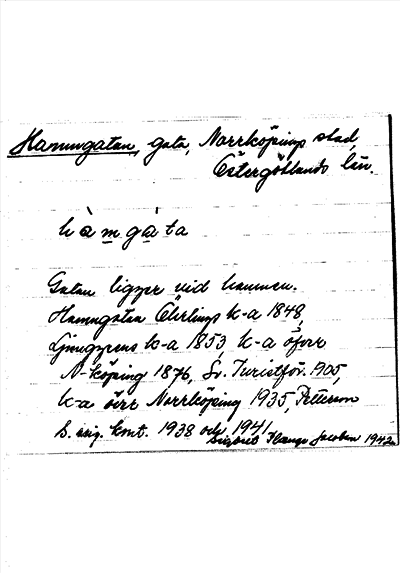 Hamngatan, gata, Norrköpings stad,
Östergötlands län.
hàmgàta
Gatan ligger vid hamnen.
Hamngatan Öhrlings k-a 1848,
Ljunggrens k-a 1853, k-a öfver
N-köping 1876, Sv. Turistför. 1905,
k-a över Norrköping 1935, Petterson
S. orig. kont. 1938 och 1941.
Sigurd Jacobson 1942.